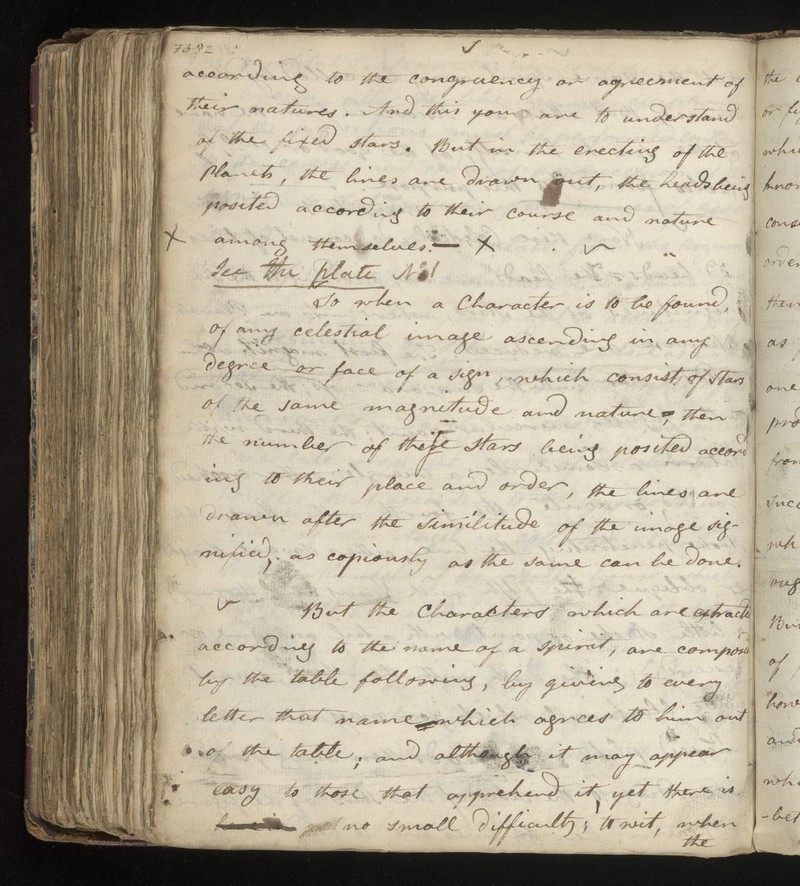 according to the congruency or agreement of
their natures. And this you are to understand
of the fixed stars. But in the erecting of the
Planets, the lines are drawn out, the heads being
posited according to their course and nature
X among themselves.— X
See the plate No 1
So when a Character is to be found,
of any celestial image ascending in any
degree or face of a sign, which consist, of stars
of the same magnitude and nature; then
the number of these stars being posited accord
ing to their place and order, the lines are
drawn after the similitude of the image sig-
nified, as copiously as the same can be done.
But the Characters which are extracted
according to the name of a spirit, are composed
by the table following, by giving to every
letter that name which agrees to him out
of the table; and although it may appear
easy to those that apprehend it, yet there is
no small difficulty; to wit, when
the